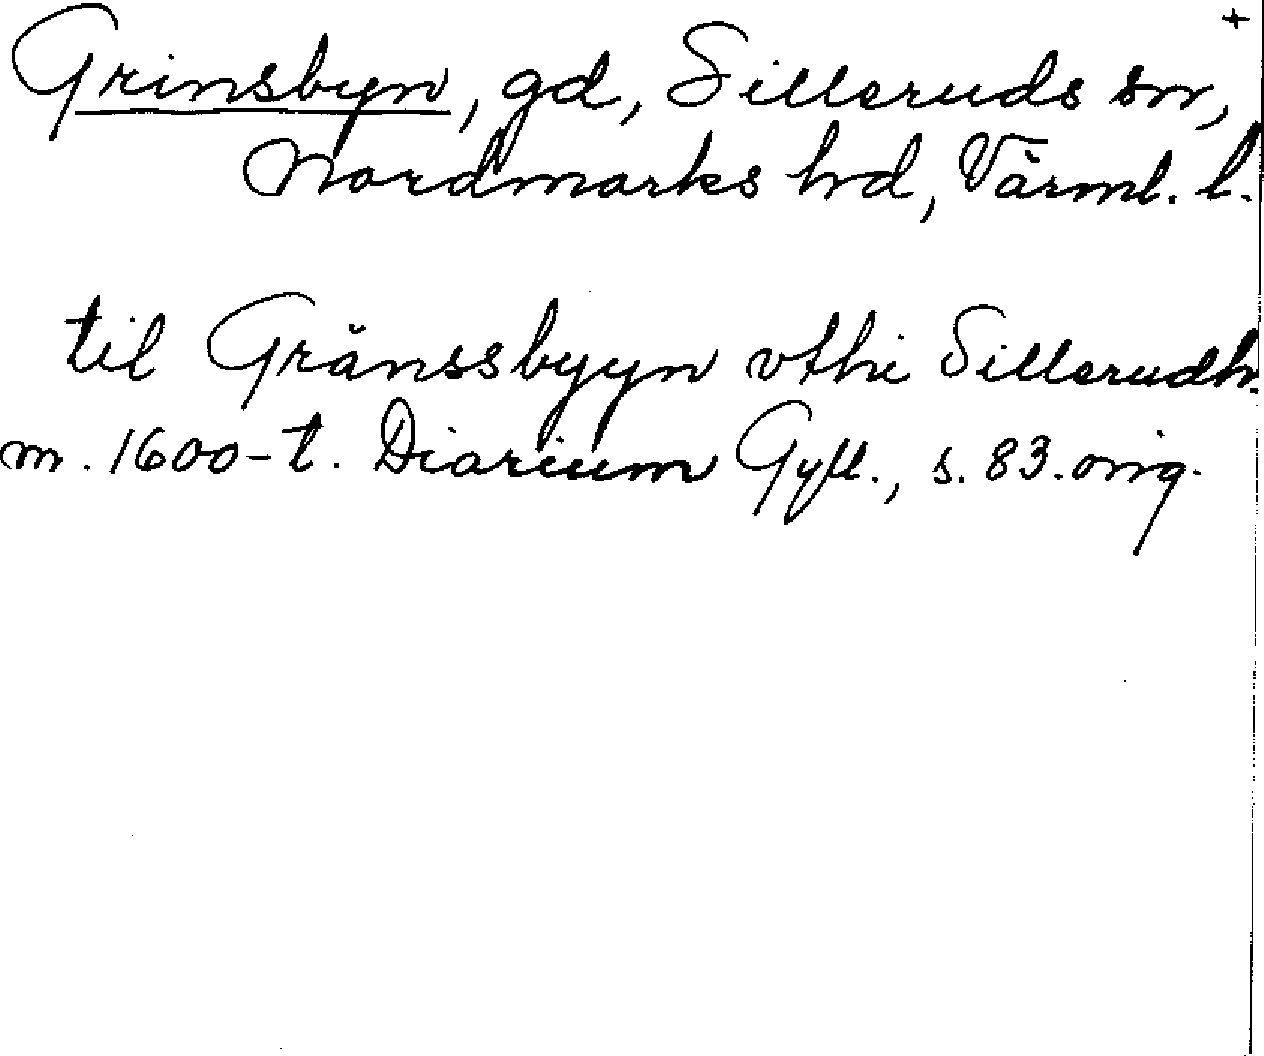 +
Grinsbyn, gd, Silleruds sn,
Nordmarks hd, Värml. l.
til Gränssbyyn vthi Sillerudh
m. 1600-t. Diarium Gyll., s. 83. orig.